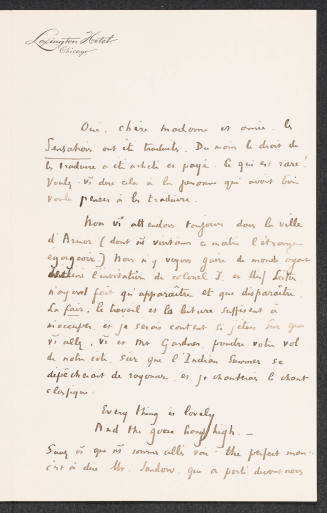 Lexington Hotel
Chicago
Oui, chère madame et amie, les
Sensations ont été traduites. Du moins le droit de
les traduire a été acheté et payé. Ce qui est rare!
Voulez-vs dire cela à la personne qui avait bien
voulu penser à les traduire.
Nous vs attendons toujours dans la ville
d'Armour (dont ns visitons ce matin l'étrange
égorgeoir). Nous n'y voyons guère de monde ayant
l'invitation du colonel J. et
n'ayant fait qu'apparaître et que disparaître.
La foire, le travail et la lecture suffisent à
m'occuper, et je serais content si j'étais sûr que
vs allez, vs et Mr Gardner, prendre votre vol
de notre côté, sûr que l'Indian Summer se
dépêcherait de rayonner, et je chanterai le chant
classique:
Every thing is lovely
And the goose honks high. —
Savez vs que ns sommes allés voir the perfect man –
c'est à dire Mr. Sandow, qui a porté devant nous